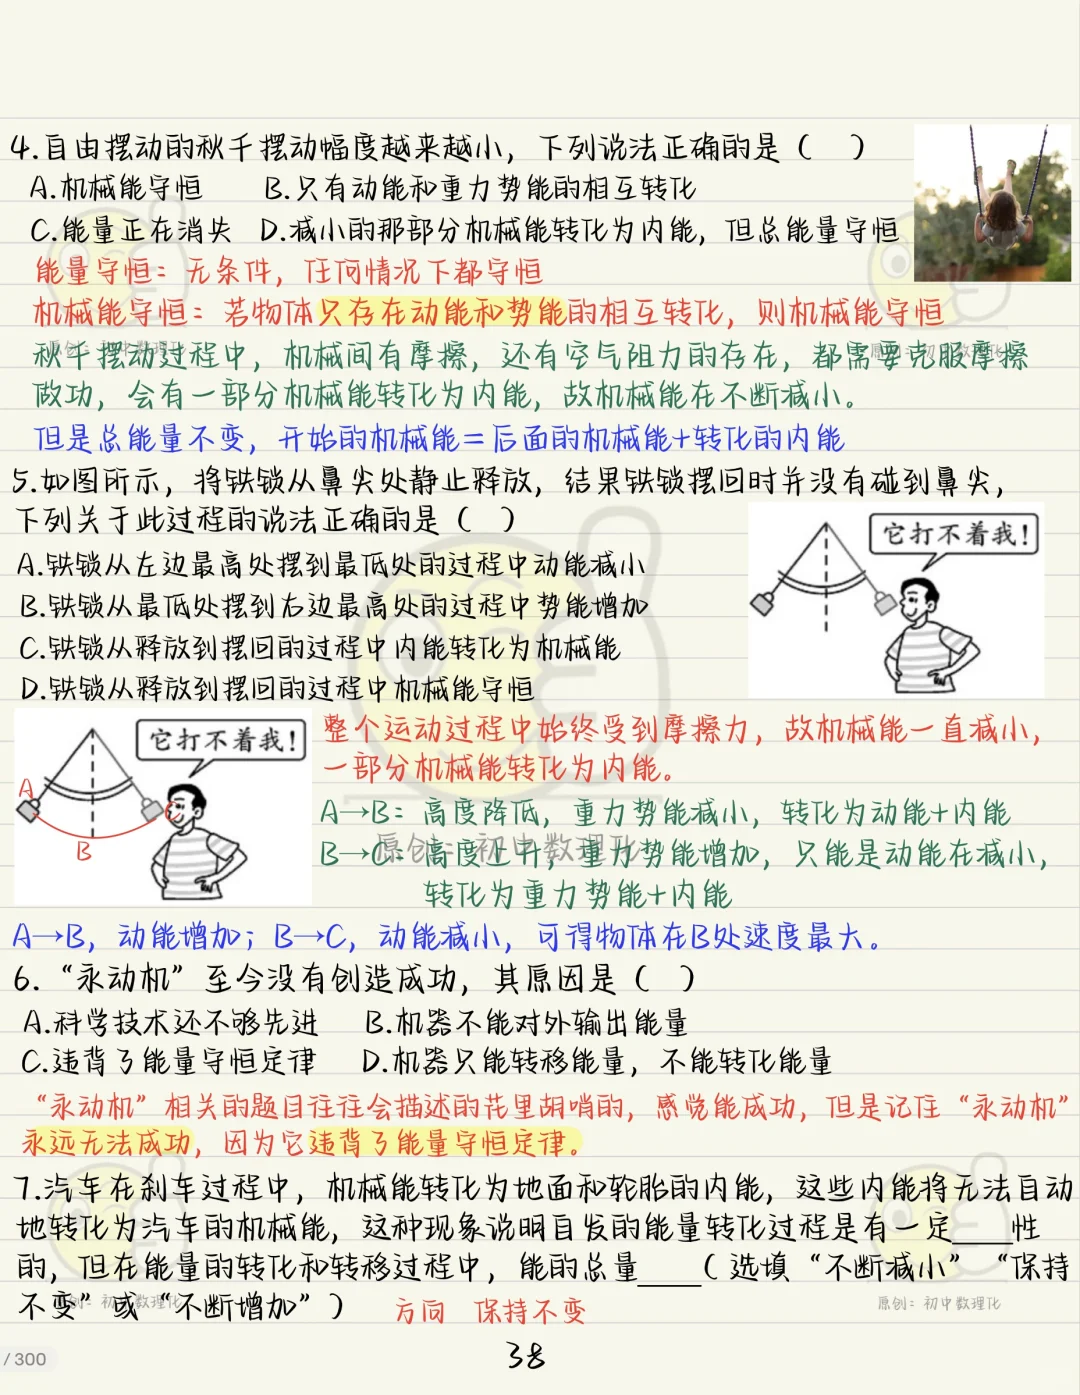 4.自由摆动的秋千摆动幅度越来越小，下列说法正确的是（ ）
A.机械能守恒 B.只有动能和重力势能的相互转化
C.能量正在消失 D.减小的那部分机械能转化为内能，但总能量守恒
能量守恒：无条件，任何情况下都守恒
机械能守恒：若物体只存在动能和势能的相互转化，则机械能守恒
秋千摆动过程中，机械间有摩擦，还有空气阻力的存在，都需要克服摩擦
做功，会有一部分机械能转化为内能，故机械能在不断减小。
但是总能量不变，开始的机械能＝后面的机械能+转化的内能
5.如图所示，将铁锁从鼻尖处静止释放，结果铁锁摆回时并没有碰到鼻尖，
下列关于此过程的说法正确的是（ ）
它打不着我！
A.铁锁从左边最高处摆到最低处的过程中动能减小
B.铁锁从最低处摆到右边最高处的过程中势能增加
C.铁锁从释放到摆回的过程中内能转化为机械能
D.铁锁从释放到摆回的过程中机械能守恒
它打不着我！
A
B
整个运动过程中始终受到摩擦力，故机械能一直减小，
一部分机械能转化为内能。
A→B：高度降低，重力势能减小，转化为动能+内能
B→C：高度上升，重力势能增加，只能是动能在减小，
转化为重力势能+内能
原创：初中数理化
A→B，动能增加；B→C，动能减小，可得物体在B处速度最大。
6.“永动机”至今没有创造成功，其原因是（ ）
A.科学技术还不够先进 B.机器不能对外输出能量
C.违背了能量守恒定律 D.机器只能转移能量，不能转化能量
“永动机”相关的题目往往会描述的花里胡哨的，感觉能成功，但是记住“永动机”
永远无法成功，因为它违背了能量守恒定律。
7.汽车在刹车过程中，机械能转化为地面和轮胎的内能，这些内能将无法自动
地转化为汽车的机械能，这种现象说明自发的能量转化过程是有一定____性
的，但在能量的转化和转移过程中，能的总量____（选填“不断减小”“保持
不变”或“不断增加”）
方向 保持不变
原创：初中数理化
原创：初中数理化
38
/ 300